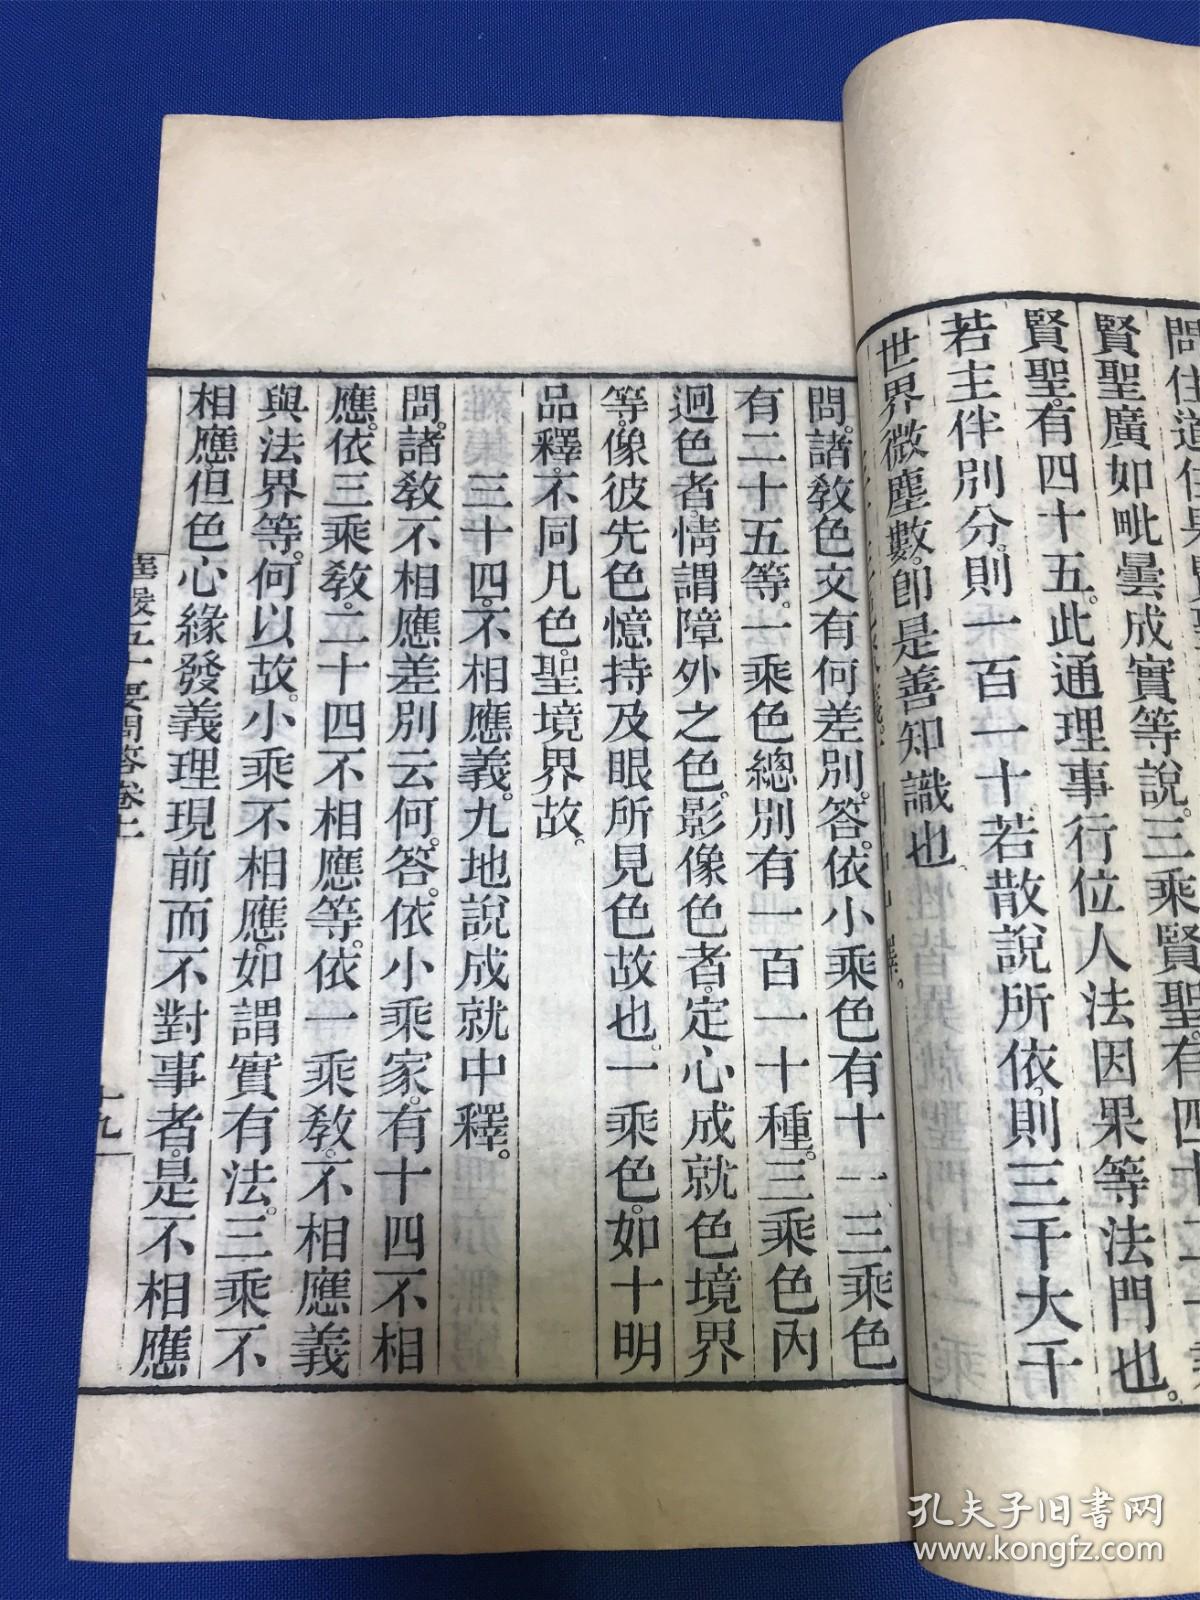 賢聖廣如毗曇成實等說。三乘賢聖。有四
賢聖。有四十五。此通理事行位人法因果等法門也。
若主伴別分。則一百一十。若散說所依。則三千大千
世界微塵數。卽是善知識也。
問。諸教色文有何差別。答。依小乘色有十一。三乘色
有二十五等。一乘色總別有一百一十種。三乘色內
迥色者。情謂障外之色。影像色者。定心成就色境界
等。像彼先色憶持及眼所見色故也。一乘色。如十明
品釋。不同凡色。聖境界故。
三十四。不相應義。九地說成就中釋。
問。諸教不相應差別云何。答。依小乘家。有十四不相
應。依三乘教。二十四不相應等。依一乘教。不相應義
與法界等。何以故。小乘不相應。如謂實有法。三乘不
相應。但色心緣發義理現前而不對事者。是不相應
華嚴五十要問答卷上
十九
孔夫子旧书网
www.kongfz.com